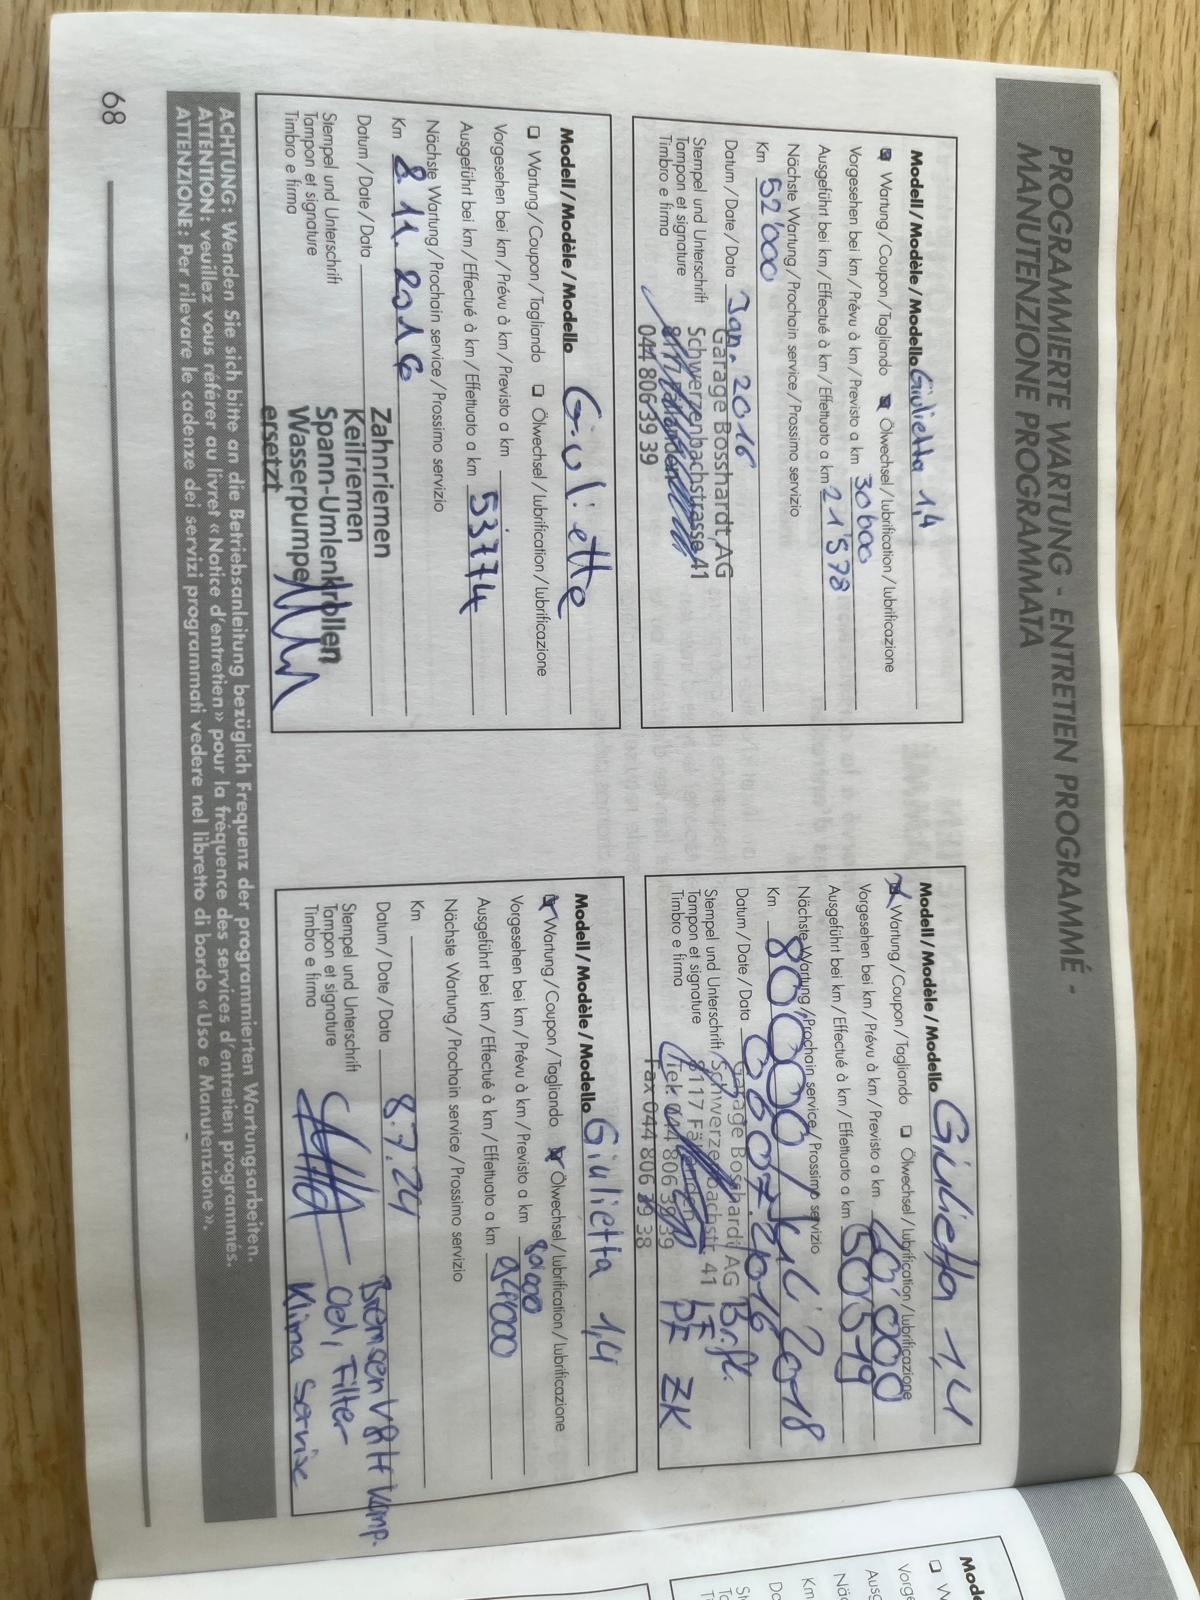 PROGRAMMIERTE WARTUNG - ENTRETIEN PROGRAMMÉ -
MANUTENZIONE PROGRAMMATA
Modell / Modèle / Modello Giulietta 1,4
Wartung / Coupon / Tagliando Ölwechsel / lubrification / lubrificazione
Vorgesehen bei km / Prévu à km / Previsto a km 30000
Ausgeführt bei km / Effectué à km / Effettuato a km 21'598
Nächste Wartung / Prochain service / Prossimo servizio
Km 52'000
Datum / Date / Data Jan. 2016
Stempel und Unterschrift
Tampon et signature
Timbro e firma
Garage Bosshardt AG
Schwerzenbachstrasse 41
8117 Fällanden
044 806 39 39
Modell / Modèle / Modello Giulietta 1,4
Wartung / Coupon / Tagliando Ölwechsel / lubrification / lubrificazione
Vorgesehen bei km / Prévu à km / Previsto a km 60'000
Ausgeführt bei km / Effectué à km / Effettuato a km 50519
Nächste Wartung / Prochain service / Prossimo servizio
Km 80000 / Juli 2018
Datum / Date / Data 06.07.2016
Stempel und Unterschrift
Tampon et signature
Timbro e firma
Garage Bosshardt AG Br.fl.
Schwerzenbachstr. 41 IF
8117 Fällanden PF ZK
Tel. 044 806 39 39
Fax 044 806 39 38
Modell / Modèle / Modello Giuliette
Wartung / Coupon / Tagliando Ölwechsel / lubrification / lubrificazione
Vorgesehen bei km / Prévu à km / Previsto a km
Ausgeführt bei km / Effectué à km / Effettuato a km 53774
Nächste Wartung / Prochain service / Prossimo servizio
Km 8 11. 2016
Datum / Date / Data
Stempel und Unterschrift
Tampon et signature
Timbro e firma
Zahnriemen
Keilriemen
Spann-Umlenkrollen
Wasserpumpe
ersetzt
Modell / Modèle / Modello Giulietta 1,4
Wartung / Coupon / Tagliando Ölwechsel / lubrification / lubrificazione
Vorgesehen bei km / Prévu à km / Previsto a km 80000
Ausgeführt bei km / Effectué à km / Effettuato a km 94'000
Nächste Wartung / Prochain service / Prossimo servizio
Km
Datum / Date / Data 8.7.24
Stempel und Unterschrift
Tampon et signature
Timbro e firma
Bremsen V&H komp.
Oel, Filter
Klima Servise
ACHTUNG: Wenden Sie sich bitte an die Betriebsanleitung bezüglich Frequenz der programmierten Wartungsarbeiten.
ATTENTION: veuillez vous référer au livret «Notice d'entretien» pour la fréquence des services d'entretien programmés.
ATTENZIONE: Per rilevare le cadenze dei servizi programmati vedere nel libretto di bordo «Uso e Manutenzione».
68